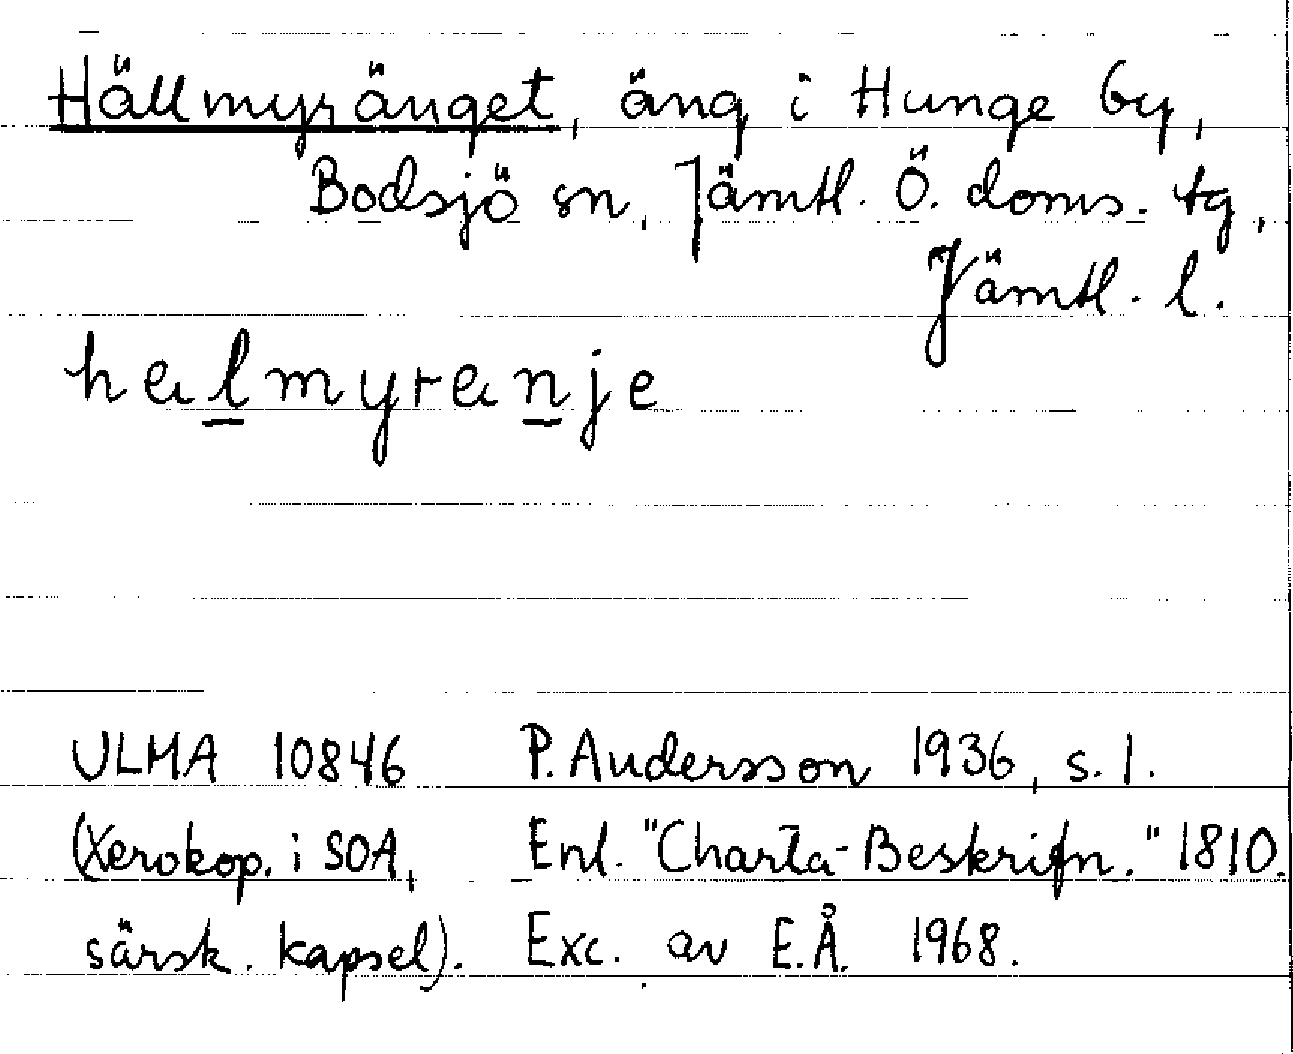 Hällmyränget, äng i Hunge by,
Bodsjö sn, Jämtl. Ö. doms. tg,
Jämtl. l.
hælmyrænje
ULMA 10846 P. Andersson 1936, s. 1.
(Xerokop. i SOA, Enl. "Charta-Beskrifn." 1810.
särsk. kapsel). Exc. av E.Å. 1968.